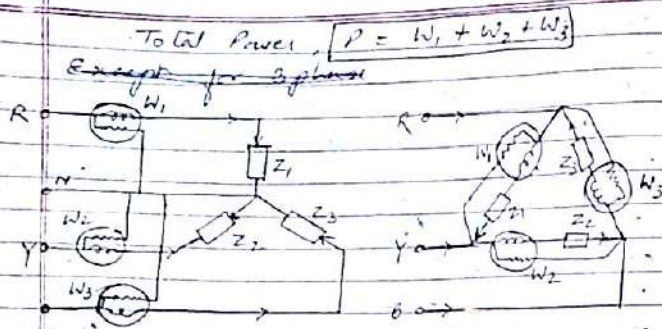 Total Power, P = W1 + W2 + W3
Except for 3 phase
R
W1
Z1
N
W2
Y
Z2
Z3
W3
R
W1
Z1
Z3
W3
Y
Z2
W2
B